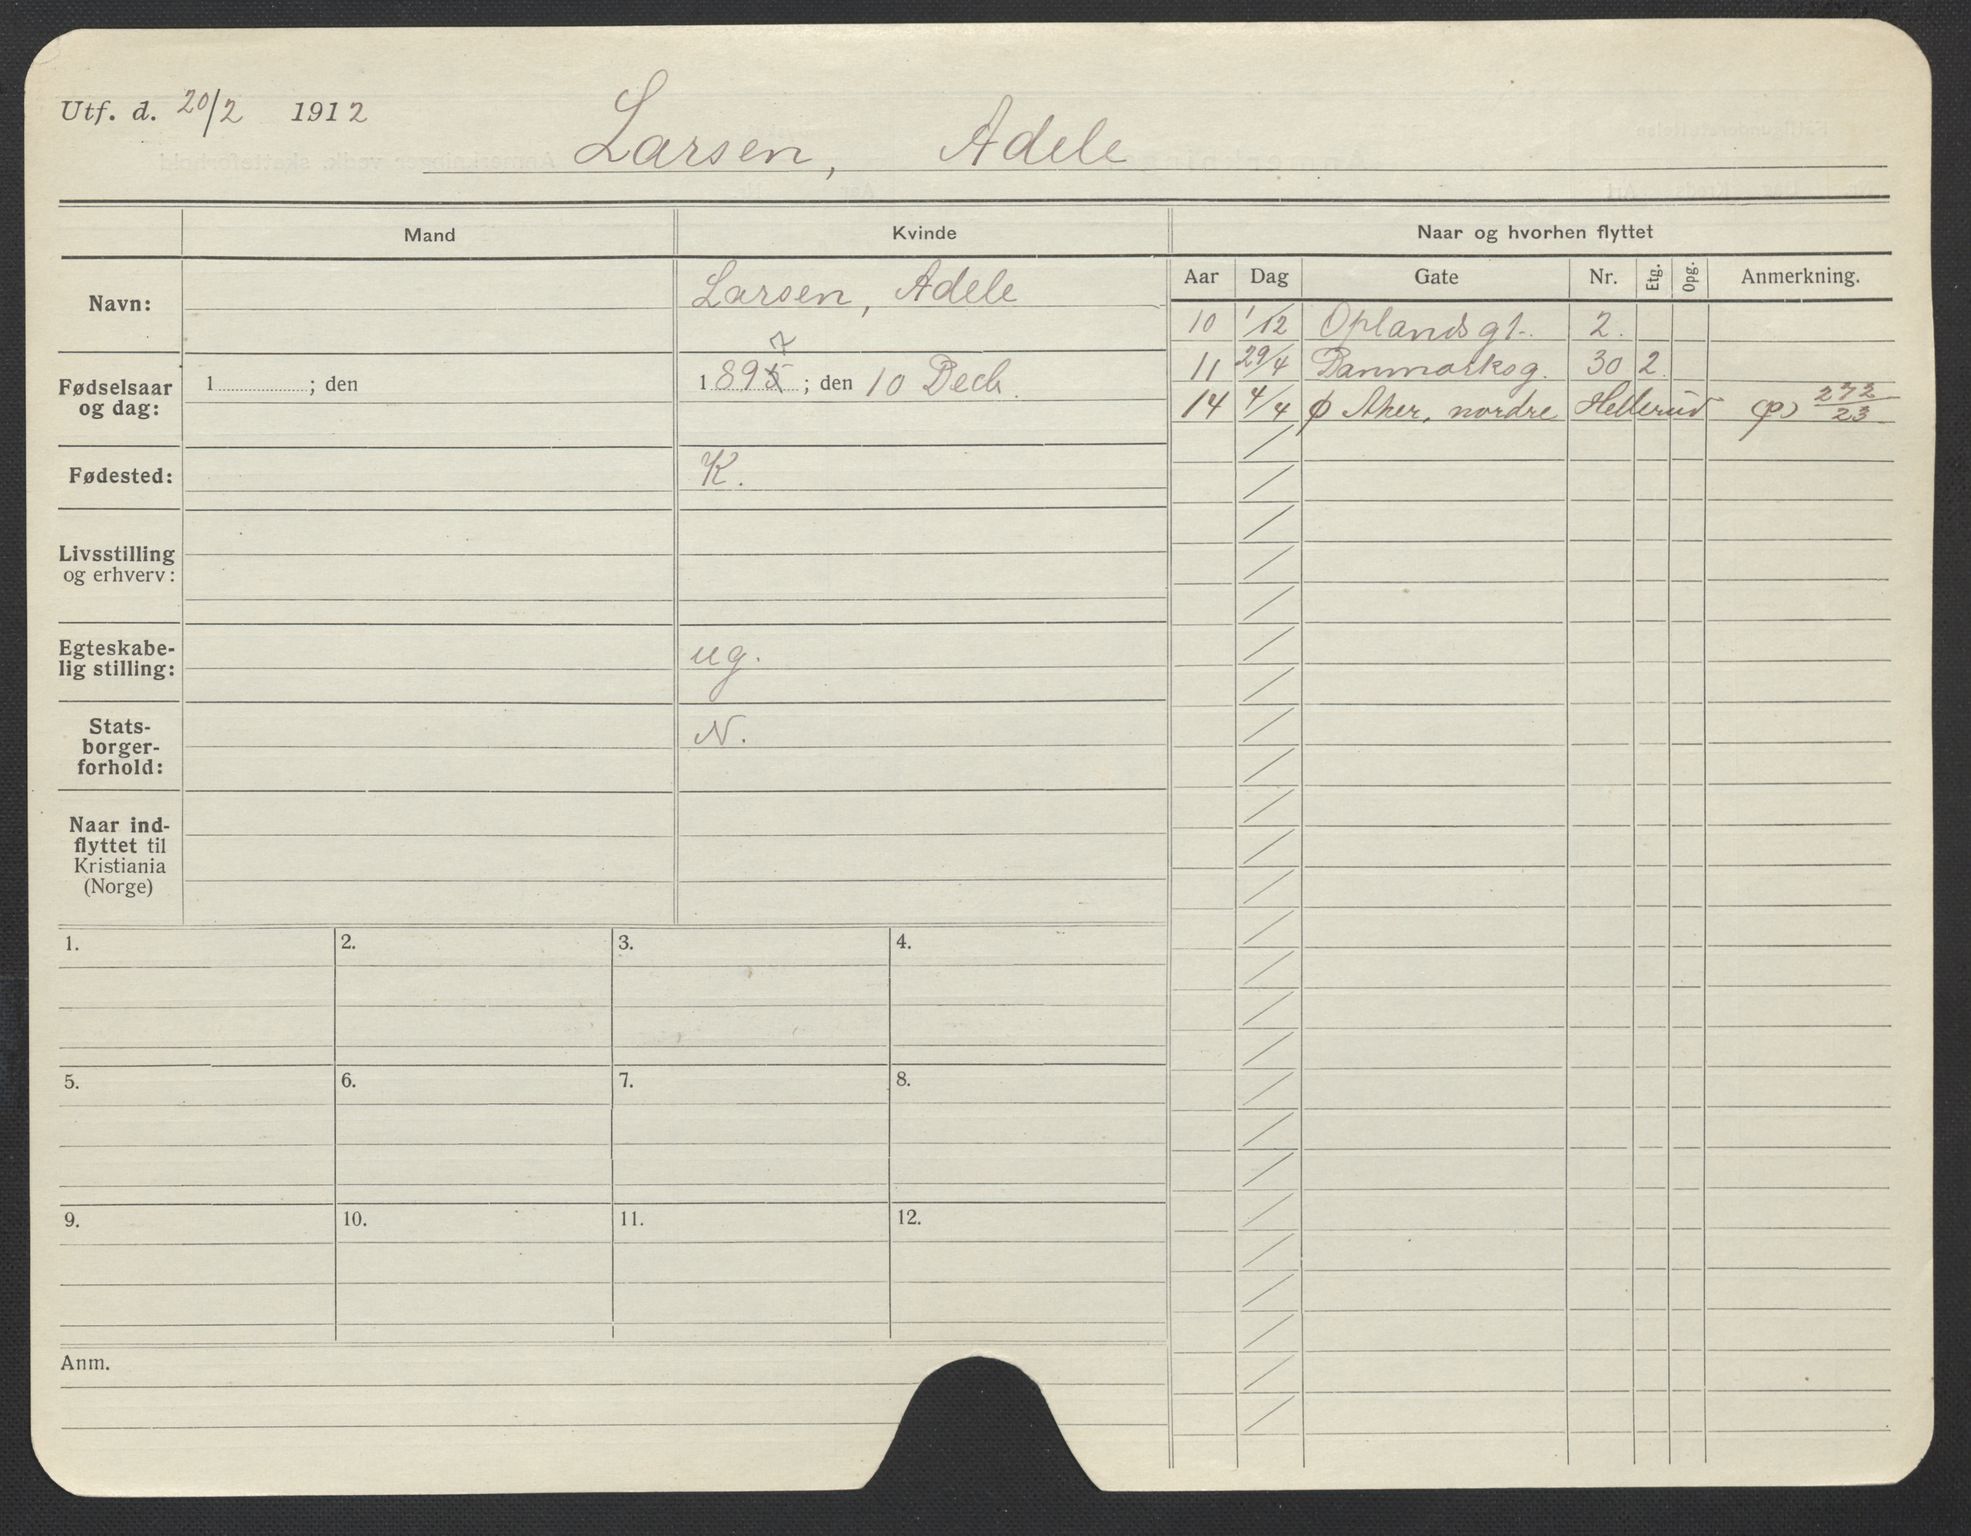 Utf. d. 20/2 1912
Larsen, Adele
Mand
Kvinde
Naar og hvorhen flyttet
Navn:
Larsen, Adele
Fødselsaar
og dag:
1 ; den
7
1 895 ; den 10 Decb.
Fødested:
K.
Livsstilling
og erhverv:
Egteskabe-
lig stilling:
ug.
Stats-
borger-
forhold:
N.
Naar ind-
flyttet til
Kristiania
(Norge)
Aar Dag Gate Nr. Etg. Opg. Anmerkning.
10 1/12 Oplandsgt. 2.
11 29/4 Danmarksg. 30 2.
14 4/4 φ Aker, nordre Hellerud (p) 272/23
1. 2. 3. 4.
5. 6. 7. 8.
9. 10. 11. 12.
Anm.